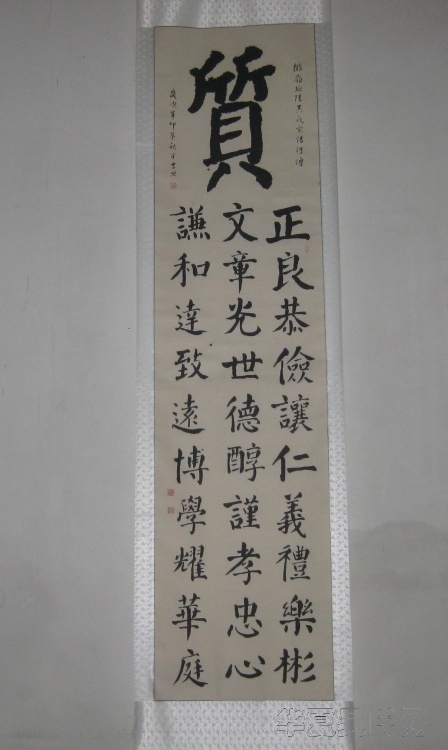 質
正良恭儉讓仁義禮樂彬
文章光世德醇謹孝忠心
謙和達致遠博學耀華庭
歲次辛卯年秋月